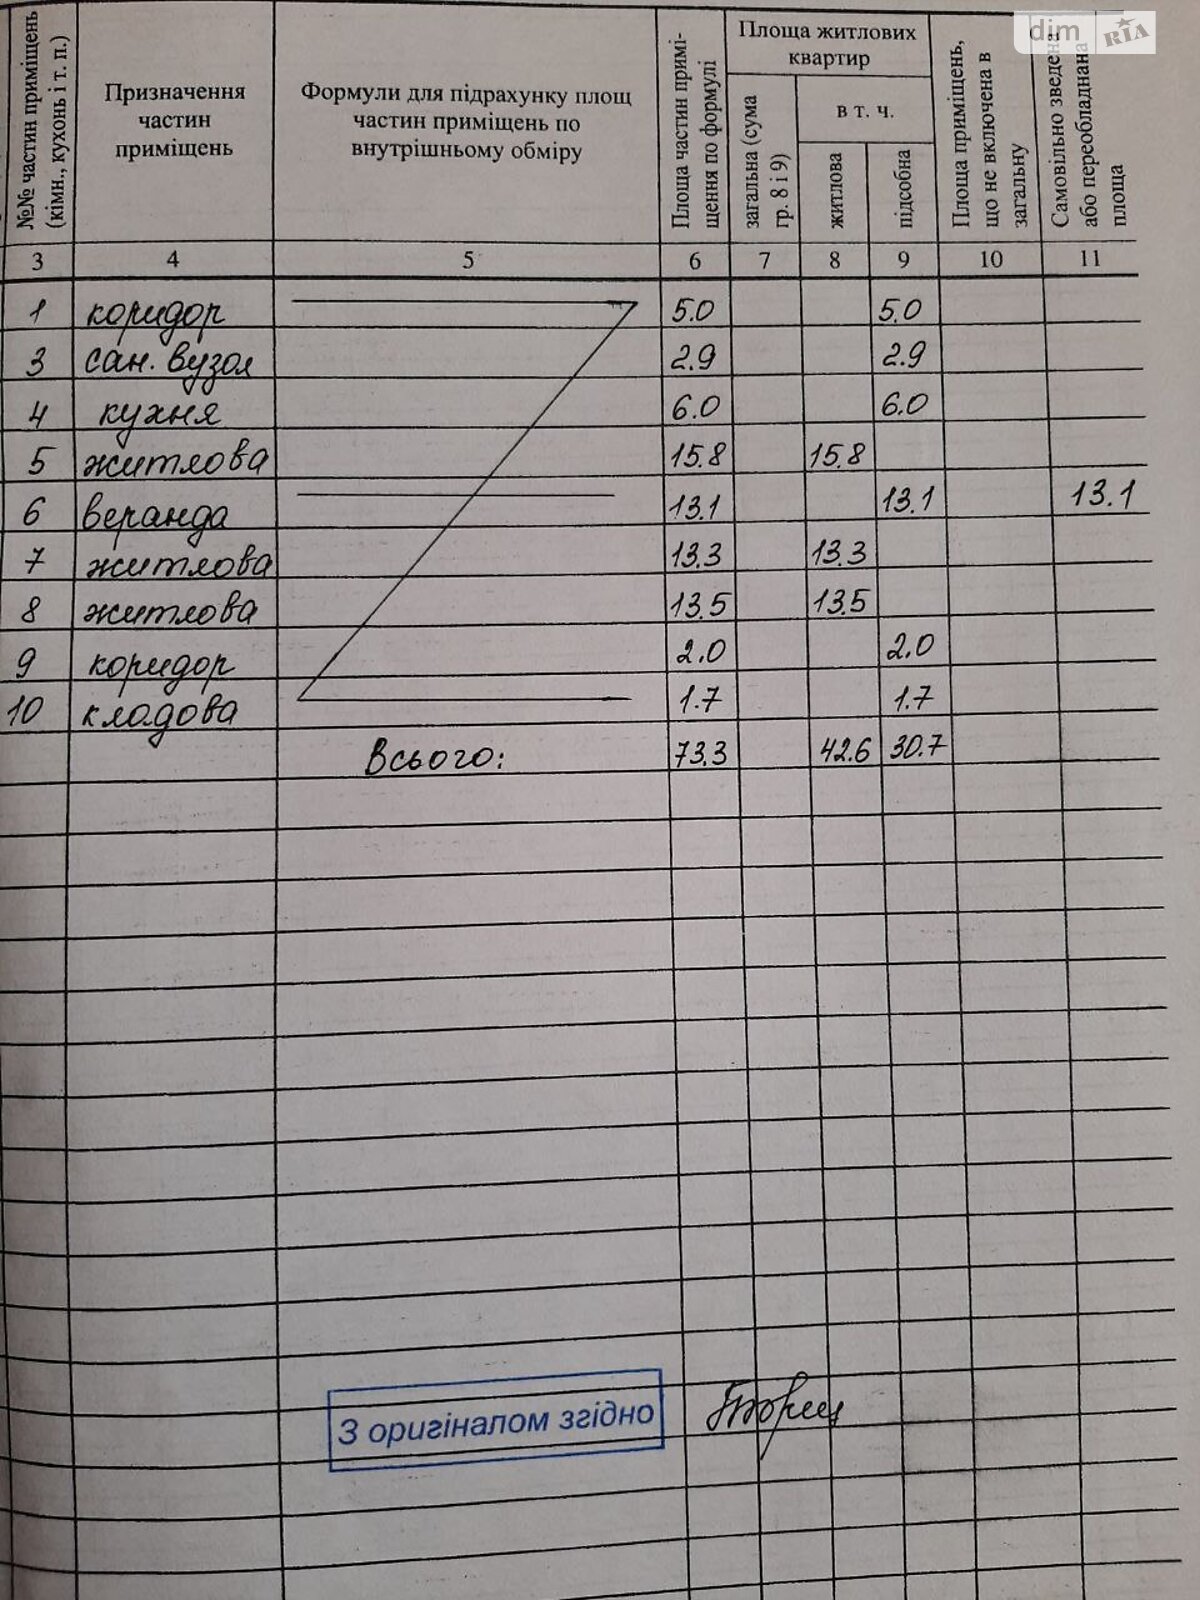 dim RIA
№№ частин приміщень (кімн., кухонь і т. п.)
Призначення частин приміщень
Формули для підрахунку площ частин приміщень по внутрішньому обміру
Площа частин примі- щення по формулі
Площа житлових квартир
загальна (сума гр. 8 і 9)
в т. ч.
житлова
підсобна
Площа приміщень, що не включена в загальну
Самовільно зведена або переобладнана площа
3 4 5 6 7 8 9 10 11
1 коридор 5.0 5.0
3 сан. вузол 2.9 2.9
4 кухня 6.0 6.0
5 житлова 15.8 15.8
6 веранда 13.1 13.1 13.1
7 житлова 13.3 13.3
8 житлова 13.5 13.5
9 коридор 2.0 2.0
10 кладова 1.7 1.7
Всього: 73.3 42.6 30.7
З оригіналом згідно